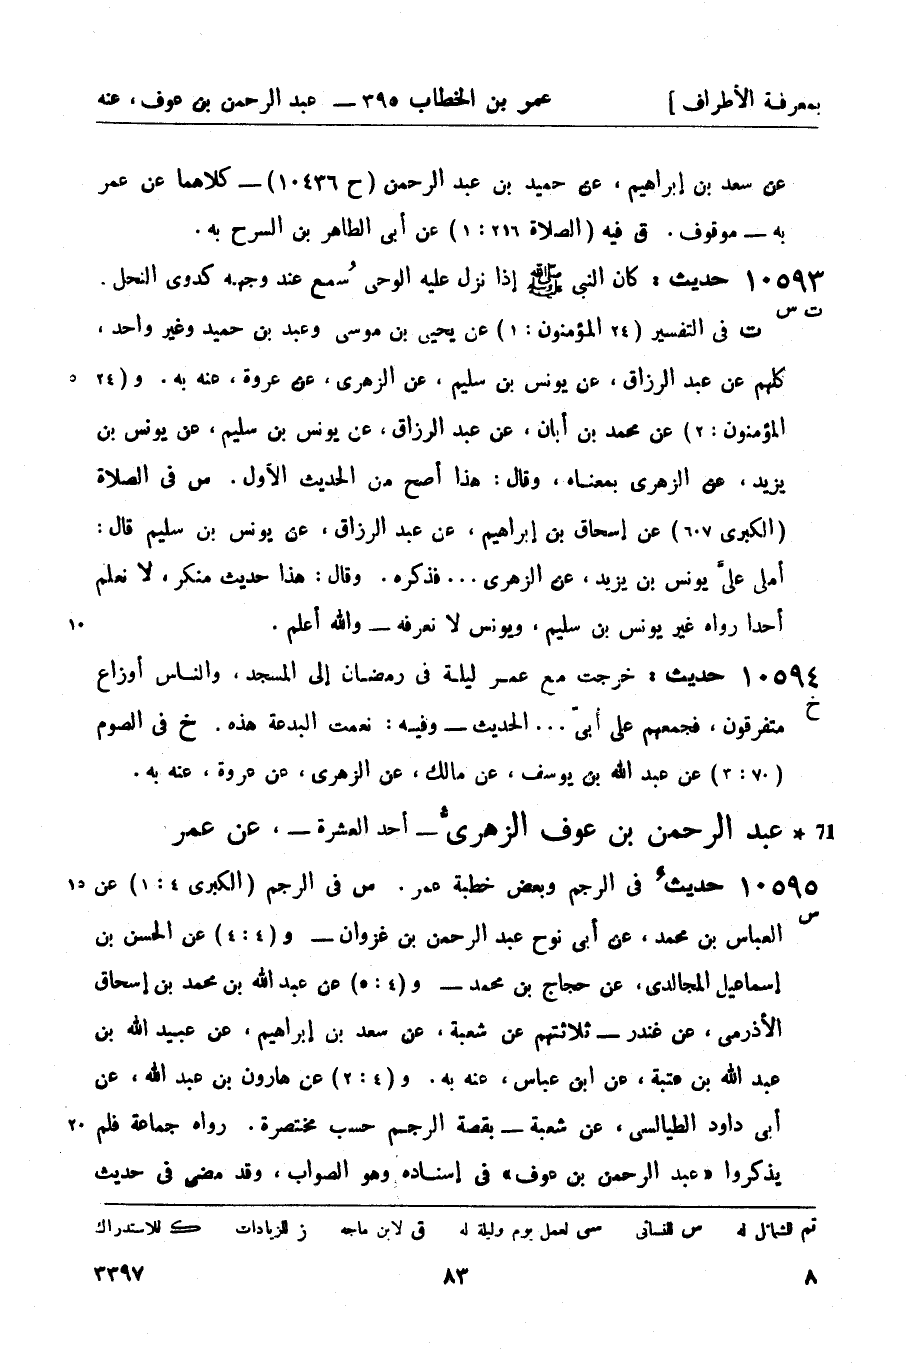 بمعرفة الأطراف ] عمر بن الخطاب ٣٩٥ — عبد الرحمن بن عوف ، عنه
عن سعد بن إبراهيم ، عن حميد بن عبد الرحمن (ح ١٠٤٣٦) — كلاهما عن عمر
به — موقوف . ق فيه (الصلاة ٢١٦ : ١) عن أبى الطاهر بن السرح به .
١٠٥٩٣ حديث : كان النبى ﷺ إذا نزل عليه الوحى سُمع عند وجهه كدوى النحل .
ت س
ت فى التفسير (٢٤ المؤمنون : ١) عن يحيى بن موسى وعبد بن حميد وغير واحد ،
كلهم عن عبد الرزاق ، عن يونس بن سليم ، عن الزهرى ، عن عروة ، عنه به . و (٢٤ ٥
المؤمنون : ٢) عن محمد بن أبان ، عن عبد الرزاق ، عن يونس بن سليم ، عن يونس بن
يزيد ، عن الزهرى بمعناه ، وقال : هذا أصح من الحديث الأول . س فى الصلاة
(الكبرى ٦٠٧) عن إسحاق بن إبراهيم ، عن عبد الرزاق ، عن يونس بن سليم قال :
أملى علىَّ يونس بن يزيد ، عن الزهرى ... فذكره . وقال : هذا حديث منكر ، لا نعلم
أحدا رواه غير يونس بن سليم ، ويونس لا نعرفه — والله أعلم . ١٠
١٠٥٩٤ حديث : خرجت مع عمر ليلة فى رمضان إلى المسجد ، والناس أوزاع
خ
متفرقون ، فجمعهم على أبىّ ... الحديث — وفيه : نعمت البدعة هذه . خ فى الصوم
(٧٠ : ٣) عن عبد الله بن يوسف ، عن مالك ، عن الزهرى ، عن عروة ، عنه به .
71 * عبد الرحمن بن عوف الزهرى — أحد العشرة — ، عن عمر
١٠٥٩٥ حديثُ فى الرجم وبعض خطبة عمر . س فى الرجم (الكبرى ٤ : ١) عن ١٥
س
العباس بن محمد ، عن أبى نوح عبد الرحمن بن غزوان — و (٤ : ٤) عن الحسن بن
إسماعيل المجالدى ، عن حجاج بن محمد — و (٤ : ٥) عن عبد الله بن محمد بن إسحاق
الأذرمى ، عن غندر — ثلاثتهم عن شعبة ، عن سعد بن إبراهيم ، عن عبيد الله بن
عبد الله بن عتبة ، عن ابن عباس ، عنه به . و (٤ : ٢) عن هارون بن عبد الله ، عن
أبى داود الطيالسى ، عن شعبة — بقصة الرجم حسب مختصرة . رواه جماعة فلم ٢٠
يذكروا «عبد الرحمن بن عوف» فى إسناده وهو الصواب ، وقد مضى فى حديث
تم للشمائل له س للنسائى سى لعمل يوم وليلة له ق لابن ماجه ز للزيادات ك للاستدراك
٨ ٨٣ ٣٣٩٧